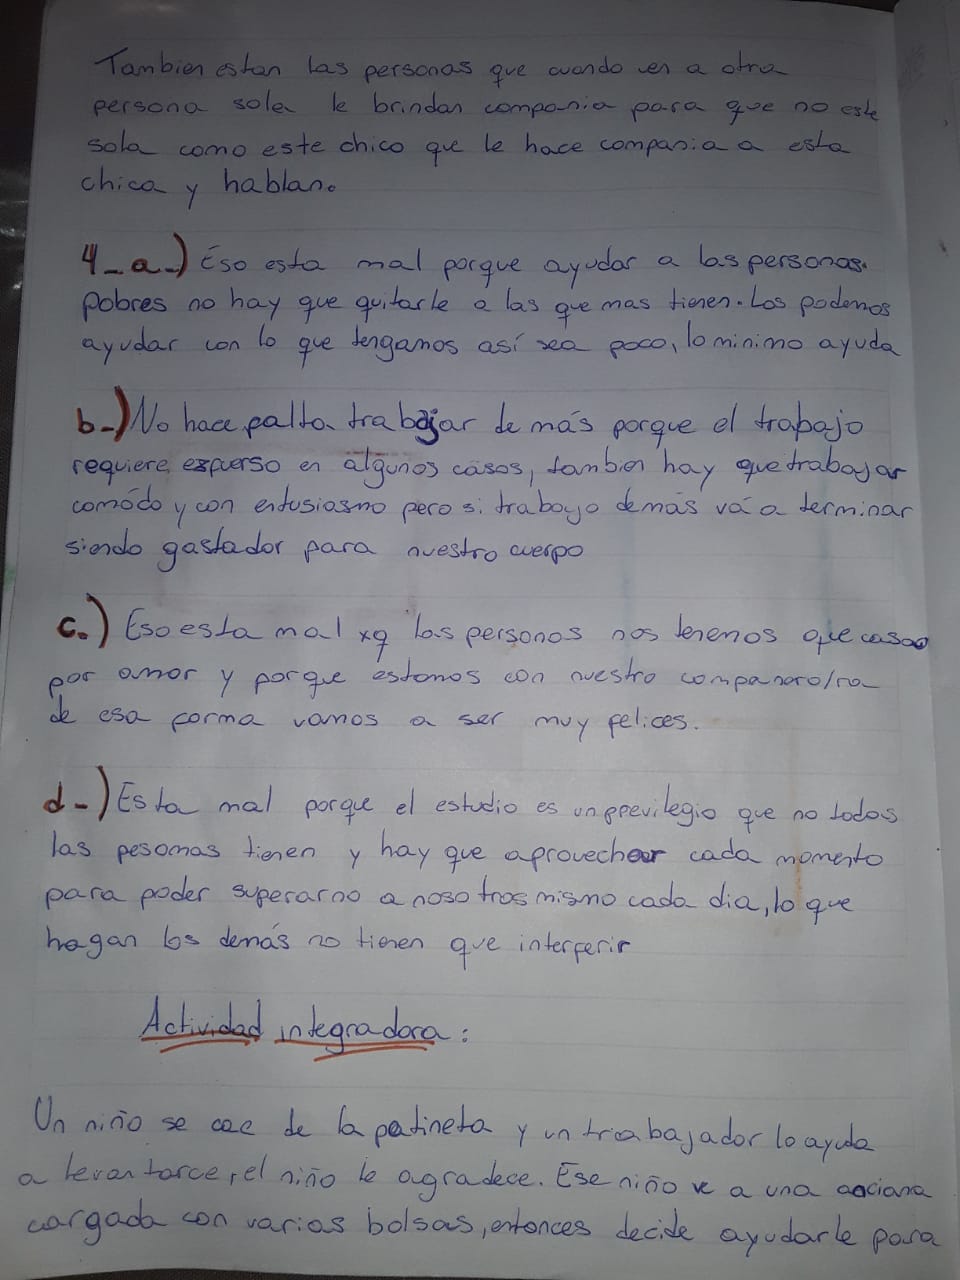 Tambien estan las personas que cuando ven a otra
persona sola le brindan compania para que no este
sola como este chico que le hace compania a esta
chica y hablan.
4-a-) Eso esta mal porque ayudar a las personas.
pobres no hay que quitarle a las que mas tienen. Los podemos
ayudar con lo que tengamos así sea poco, lo minimo ayuda
b-) No hace falta trabajar de más porque el trabajo
requiere esfuerso en algunos casos, tambien hay que trabajar
comódo y con entusiasmo pero si trabajo demás vá a terminar
siendo gastador para nuestro cuerpo
c.) Eso esta mal xq las personas nos tenemos que casar
por amor y porque estamos con nuestro companero/na
de esa forma vamos a ser muy felices.
d-) Esta mal porque el estudio es un previlegio que no todos
las pesomas tienen y hay que aprovechar cada momento
para poder superarno a nosotros mismo cada dia, lo que
hagan los demás no tienen que interferir
Actividad integradora:
Un niño se cae de la patineta y un trabajador lo ayuda
a levantarce, el niño le agradece. Ese niño ve a una anciana
cargada con varias bolsas, entonces decide ayudarle para